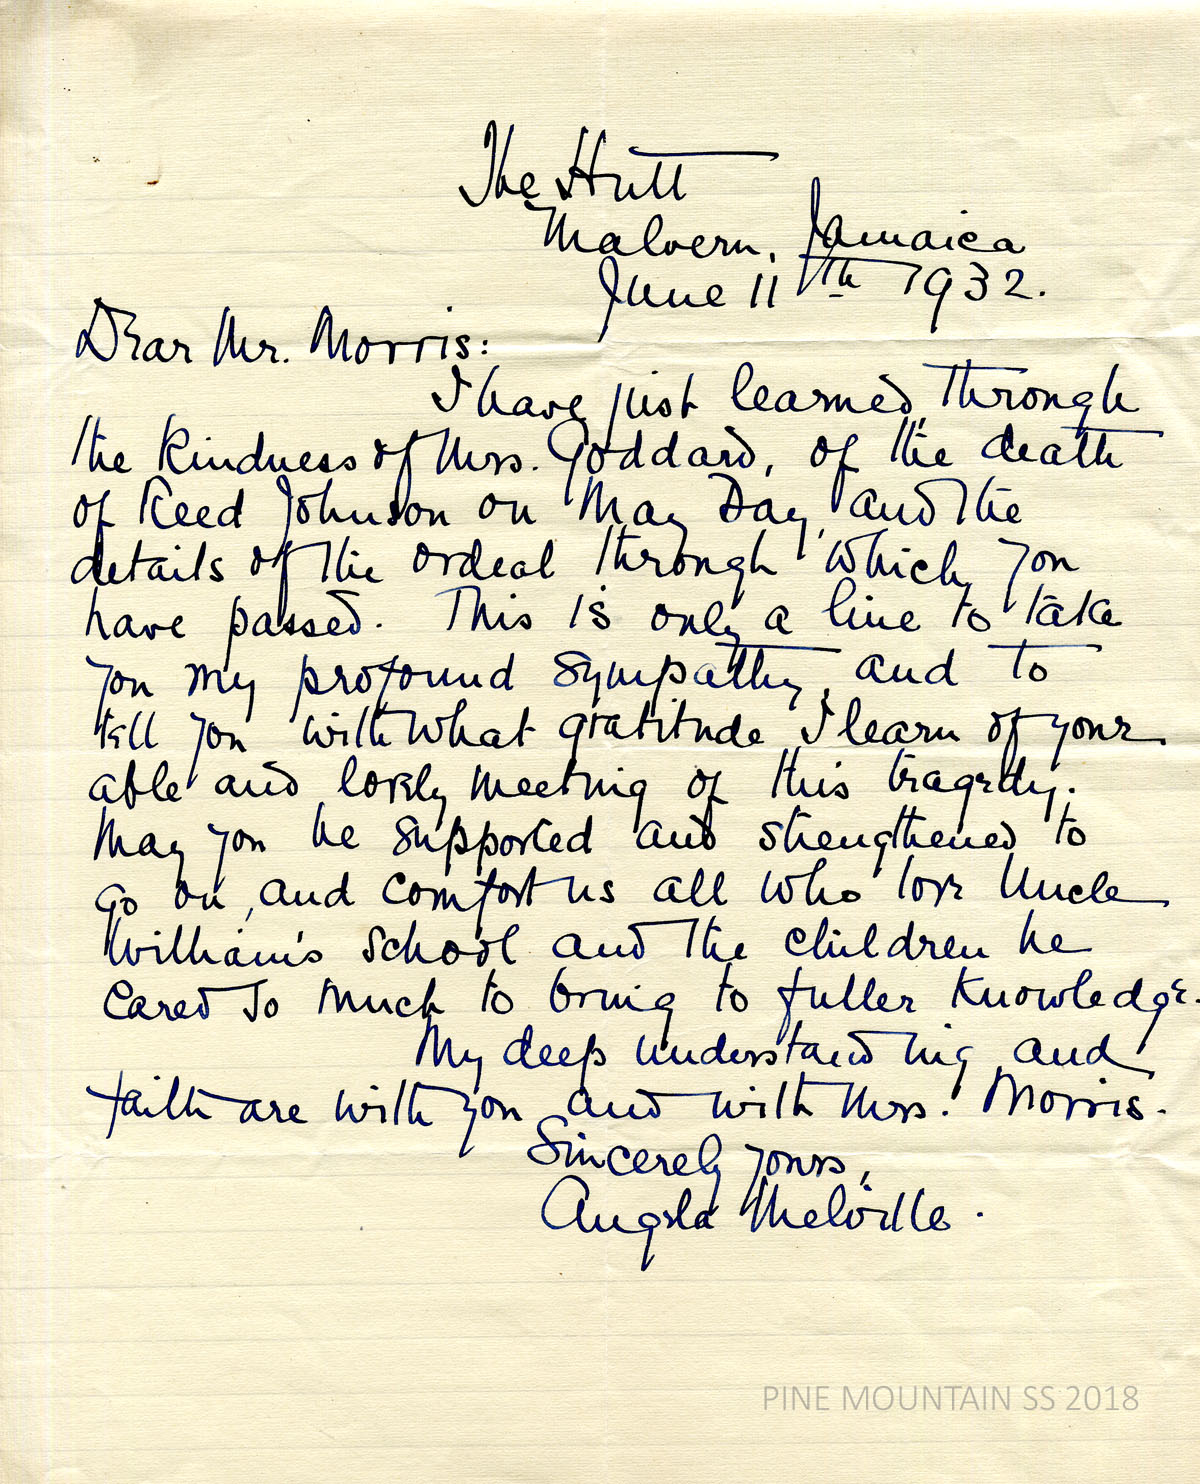 The Hutt
Malvern, Jamaica
June 11th 1932.
Dear Mr. Morris:
I have just learned through
the kindness of Mrs. Goddard, of the death
of Reed Johnson on May Day, and the
details of the ordeal through which you
have passed. This is only a line to take
you my profound sympathy, and to
tell you with what gratitude I learn of your
able and lovely meeting of this tragedy.
May you be supported and strengthened to
go on, and comfort us all who love Uncle
William's school and the children he
cared so much to bring to fuller knowledge.
My deep understanding and
faith are with you and with Mrs. Morris.
Sincerely yours,
Angela Melville.
PINE MOUNTAIN SS 2018